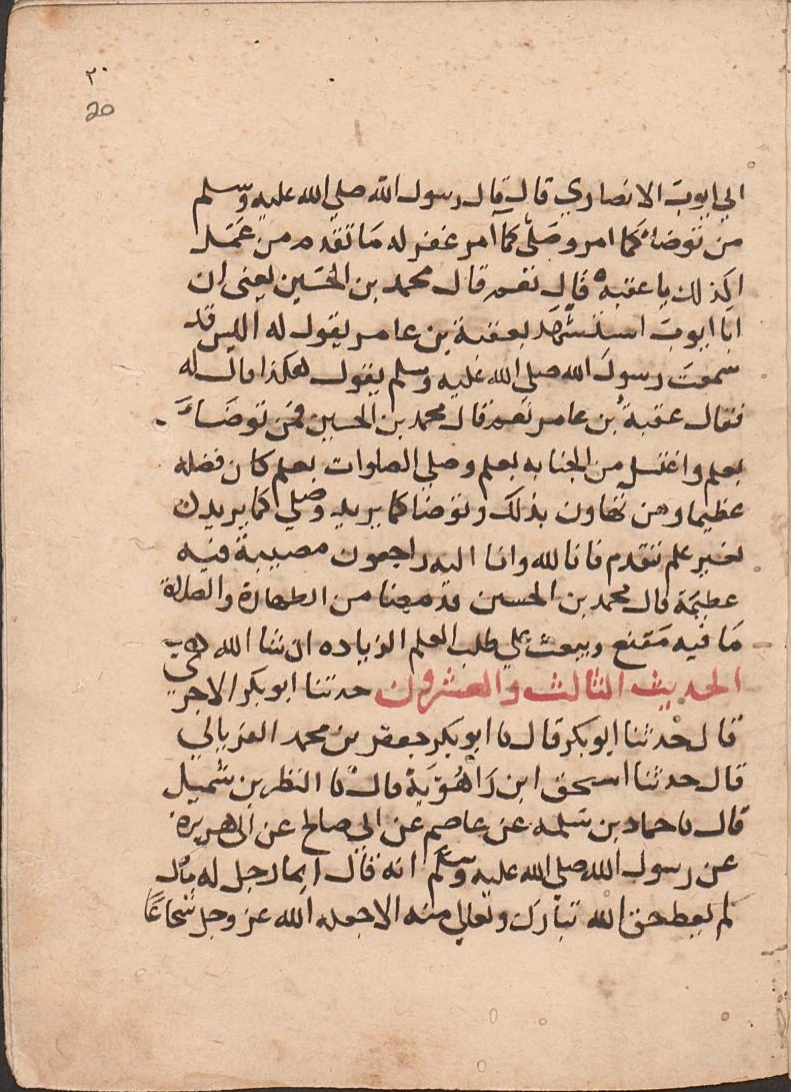 ٢٠
20
ابي ايوب الانصاري قال قال رسول الله صلي الله عليه وسلم
من توضا كما امر وصلي كما امر غفر له ما تقدم من عمل
اكذلك يا عقبه قال نعم قال محمد بن الحسين يعني ان
ابا ايوب استشهد بعقبة بن عامر يقول له اليس قد
سمعت رسول الله صلي الله عليه وسلم يقول هكذا قال له
فقال عقبة بن عامر نعم قال محمد بن الحسين فمن توضاء
بعلم واغتسل من الجنابه بعلم وصلي الصلوات بعلم كان فضله
عظيما ومن تهاون بذلك وتوضا كما يريد وصلي كما يريد
لغير علم تقدم فانا لله وانا اليه راجعون مصيبة فيه
عظيمة قال محمد بن الحسين قد معنا من الطهارة والصلاة
ما فيه مقنع ويبعث علي طلب العلم الزياده ان شا الله
الحديث الثالث والعشرون حدثنا ابو بكر الاجري
قال حدثنا ابو بكر قال نا ابو بكر جعفر بن محمد الفريابي
قال حدثنا اسحق ابن راهوية قال نا النظر بن شميل
قال نا حماد بن سلمه عن عاصم عن ابي صالح عن ابي هريرة
عن رسول الله صلي الله عليه وسلم انه قال ايما رجل له مال
لم يعط حق الله تبارك وتعالي منه الا جعله الله عز وجل شجاعا